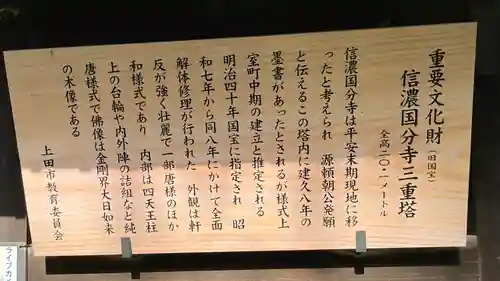 重要文化財（旧国宝）
信濃国分寺三重塔
全高二〇・一メートル
信濃国分寺は平安末期現地に移
ったと考えられ　源頼朝公発願
と伝えるこの塔内に建久八年の
墨書があったとされるが様式上
室町中期の建立と推定される
明治四十年国宝に指定され　昭
和七年から同八年にかけて全面
解体修理が行われた　外観は軒
反が強く壮麗で一部唐様のほか
和様式であり　内部は四天王柱
上の台輪や内外陣の詰組など純
唐様式で佛像は金剛界大日如来
の木像である
上田市教育委員会
ライブカメ